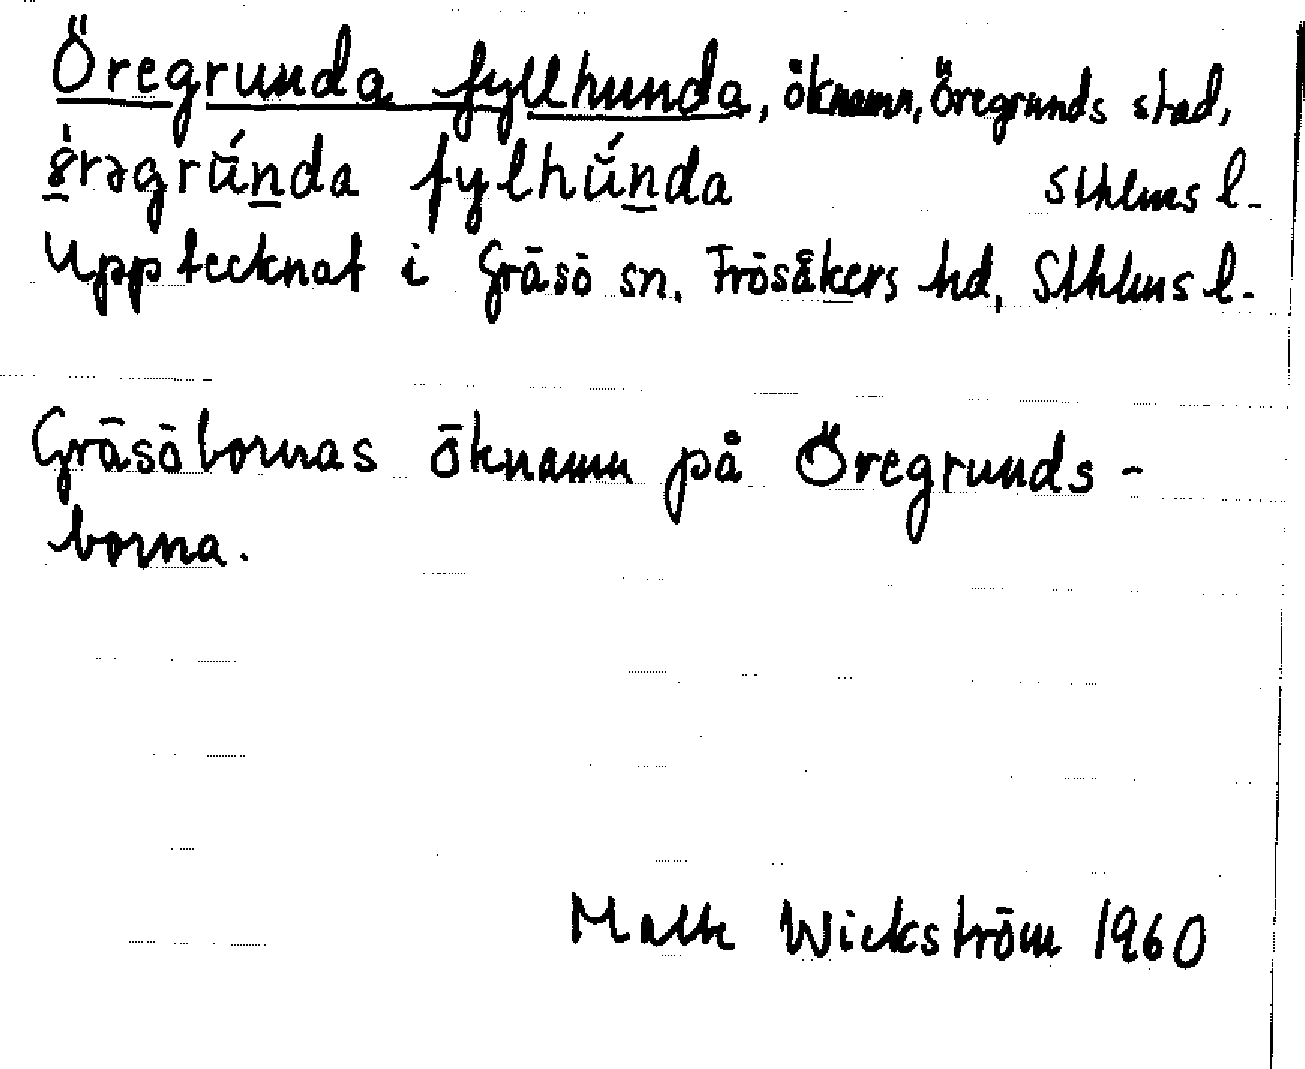 Öregrunda fyllhunda, öknamn, Öregrunds stad,
fylhúnda Sthlms l.
Upptecknat i Gräsö sn, Frösåkers hd, Sthlms l.
Gräsöbornas öknamn på Öregrunds-
borna.
Malte Wickström 1960